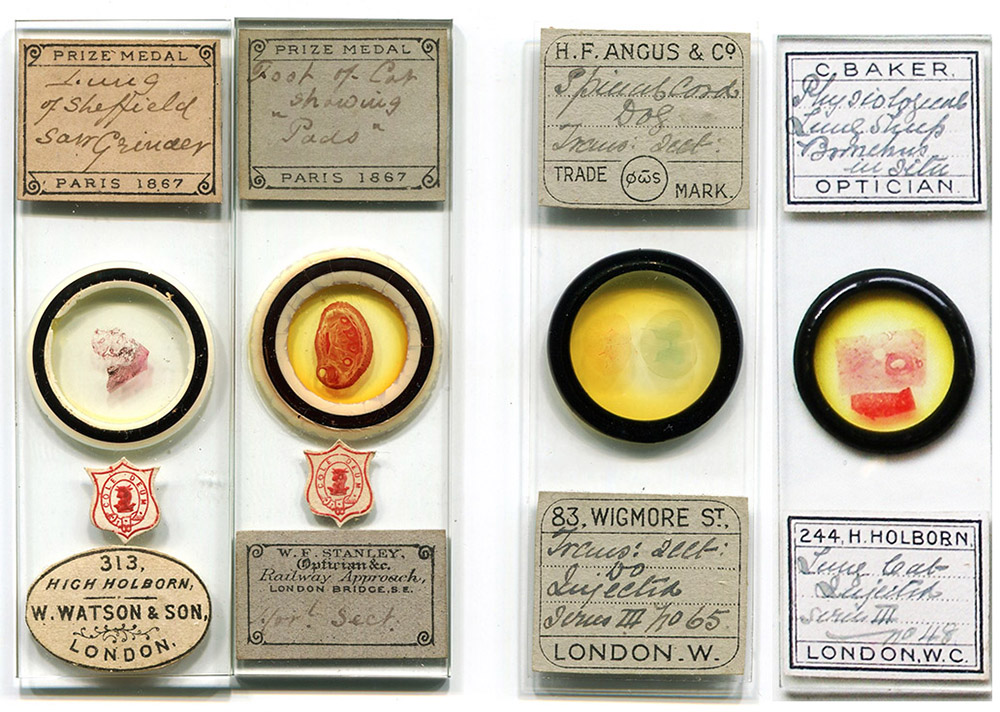 PRIZE MEDAL
Lung
of Sheffield
Saw Grinder
PARIS 1867
COLE DEUM
313,
HIGH HOLBORN,
W. WATSON & SON,
LONDON.
PRIZE MEDAL
Foot of Cat
showing
"Pads"
PARIS 1867
COLE DEUM
W. F. STANLEY,
Optician &c.
Railway Approach,
LONDON BRIDGE, S.E.
Sect.
H. F. ANGUS & Co
Spinal Cord
Dog
Trans: Sect:
TRADE φωs MARK.
83, WIGMORE ST,
Trans: Sect:
Do
Injected
Series III No 65
LONDON. W.
C. BAKER,
Physiological
Lung Sheep
Bronchus
in situ
OPTICIAN.
244, H. HOLBORN,
Lung Cat
Injected
Series III
No 48
LONDON, W.C.